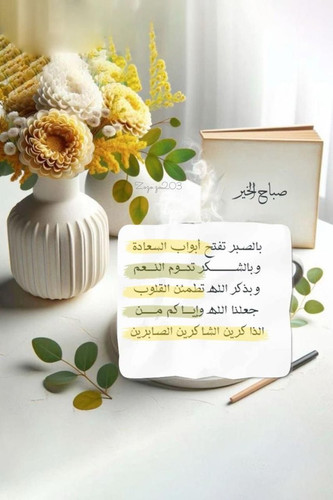 صباح الخير
بالصبر تفتح أبواب السعادة
وبالشكر تدوم النعم
وبذكر الله تطمئن القلوب
جعلنا الله وإياكم من
الذاكرين الشاكرين الصابرين